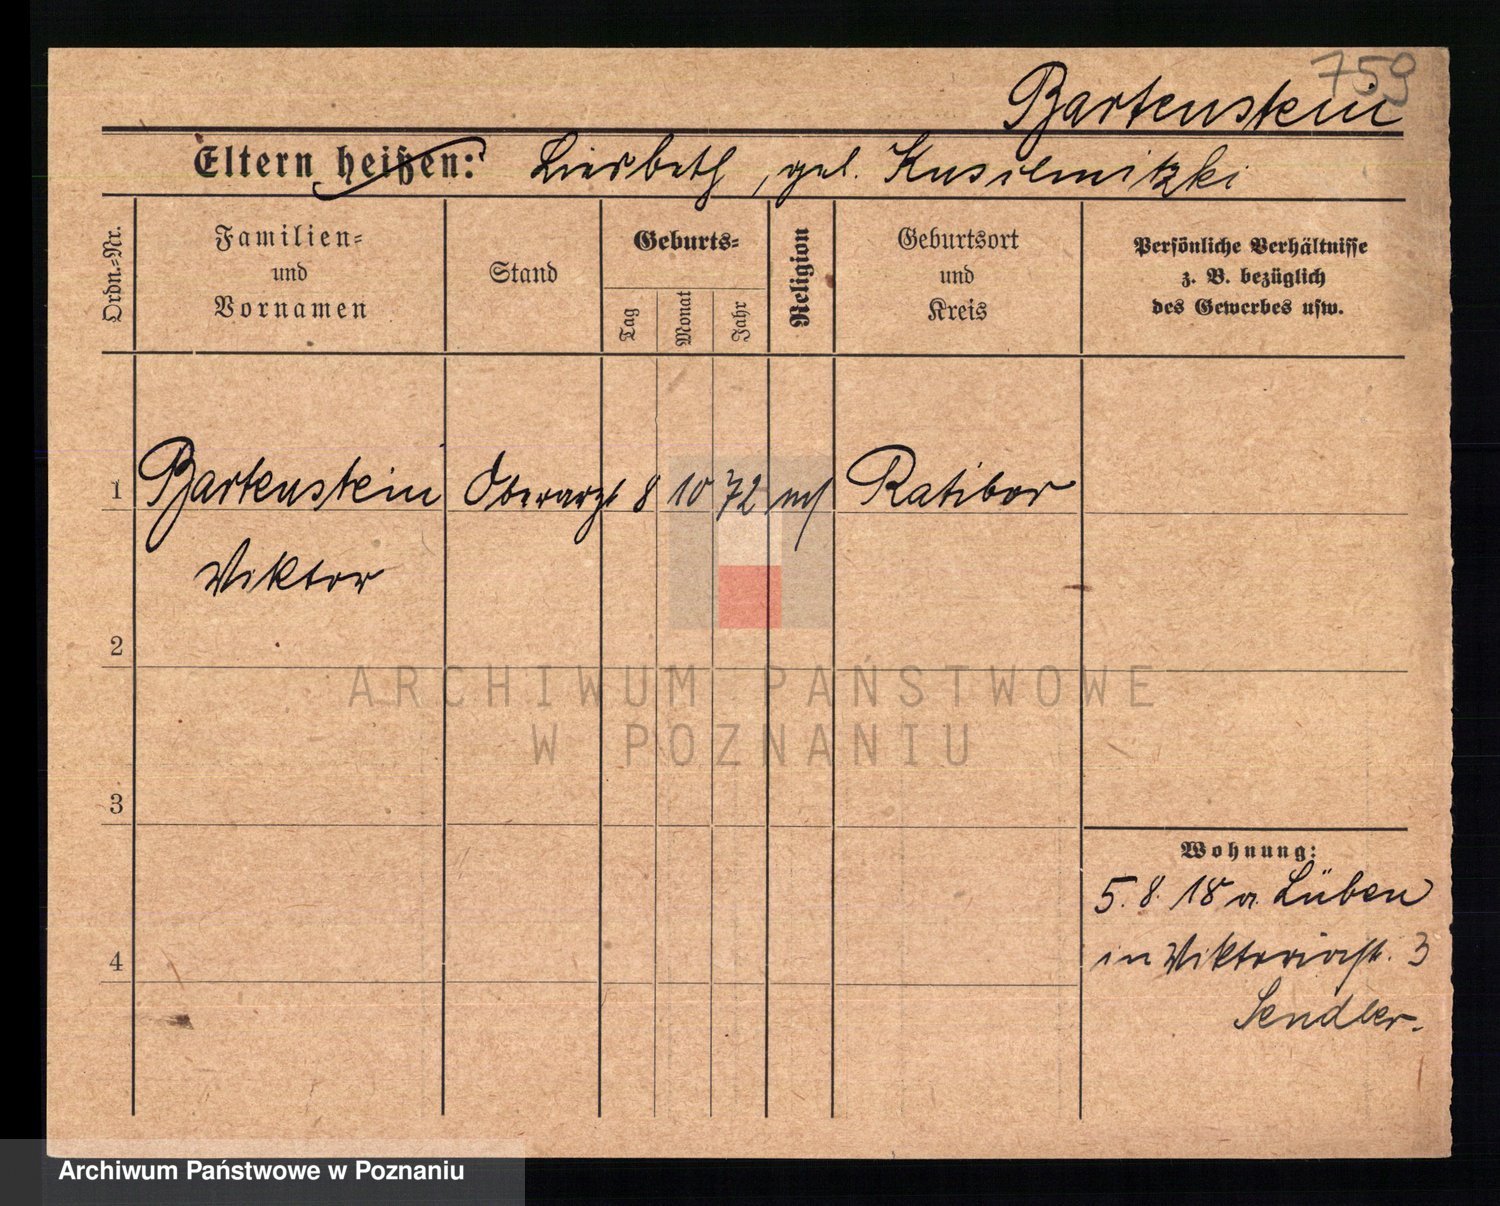 759
Bartenstein
Eltern heißen: Liesbeth, geb.
Ordn.-Nr.
Familien-
und
Vornamen
Stand
Geburts-
Tag
Monat
Jahr
Religion
Geburtsort
und
Kreis
Persönliche Verhältnisse
z. B. bezüglich
des Gewerbes usw.
1 Bartenstein Oberarzt 8 10 72 Ratibor
Viktor
2
3
4
Wohnung:
5. 8. 18 a. Lüben
in Viktoriastr. 3
Sendler.
ARCHIWUM PAŃSTWOWE
W POZNANIU
Archiwum Państwowe w Poznaniu